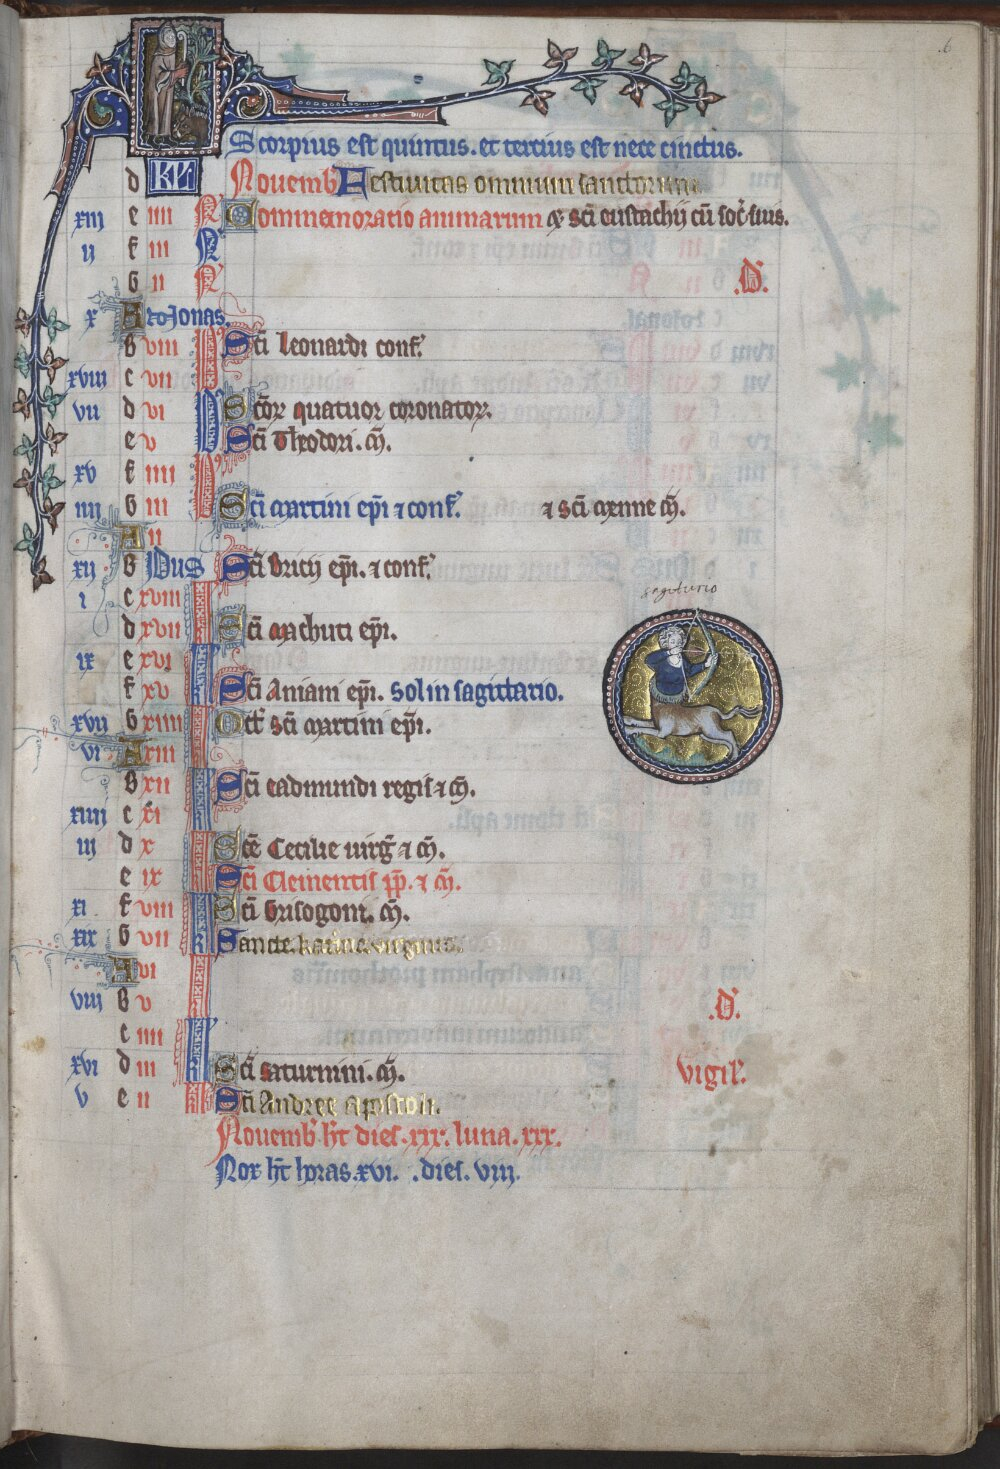 6
Scorpius est quintus. et tertius est nece cinctus.
d KL Nouemb Festiuitas omnium sanctorum.
xiii e iiii N Commemoratio animarum & sci eustachij cū soc̄ suis.
ii f iii N
g ii N .D.
x A to Nonas.
b viii Sci leonardi conf.
xviii c vii
vii d vi Scōꝝ quatuor coronatoꝝ.
e v Sci Theodori. m̄.
xv f iiii
iiii g iii Sci martini ep̄i ⁊ conf. ⁊ sci menne m̄.
A ii
xii b Idus Sci bricij ep̄i. ⁊ conf.
i c xviii
d xvii Sci machuti ep̄i.
ix e xvi
sagitario
f xv Sci Aniani ep̄i. sol in sagittario.
xvii g xiiii Oct̄ sci martini ep̄i.
vi A xiii
b xii Sci eadmundi regis ⁊ m̄.
xiiii c xi
iii d x Sce Cecilie uirḡ ⁊ m̄.
e ix Sci Clementis pp̄. ⁊ m̄.
xi f viii Sci Grisogoni. m̄.
xix g vii Sancte katerine uirginis.
A vi
viii b v .D.
c iiii
xvi d iii Sci saturnini. m̄. vigil'.
v e ii Sci Andree apostoli.
Nouemb' ht dies .xxx. luna .xxx.
Nox ht horas .xvi. .dies. viii.